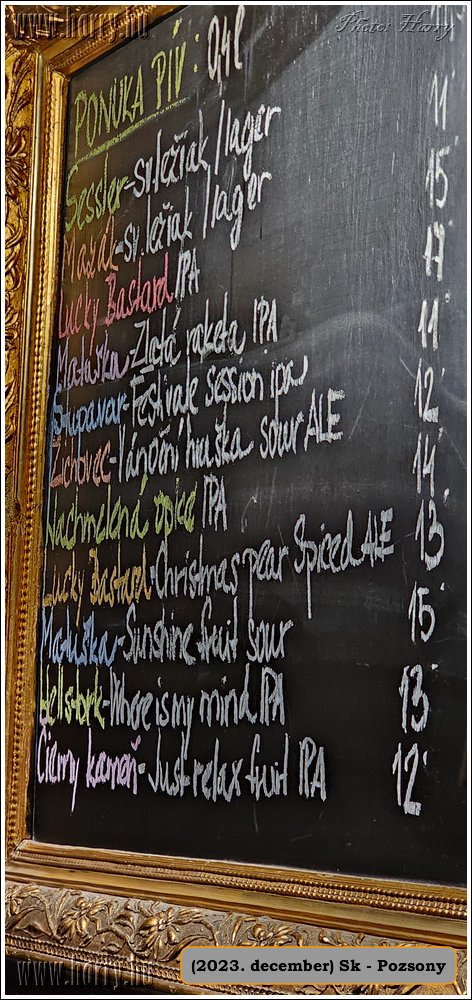 www.harry.hu
Photo: Harry
PONUKA PÍV: 0,4l
Sessler-sv.ležiak/lager
Mazák-sv.ležiak/lager 11°
Lucky Bastard IPA 15°
Matuška-Zlatá raketa IPA 17°
Stupavar-Festivale session ipa 11°
Zichovec-Vánoční hruška sour ALE 12°
Nachmelená opice IPA 14°
Lucky Bastard-Christmas pear Spiced ALE 13°
Matuška-Sunshine fruit sour 15°
Hellstork-Where is my mind IPA 13°
Čierny kameň-Just relax fruit IPA 12°
www.harry.hu
(2023. december) Sk - Pozsony